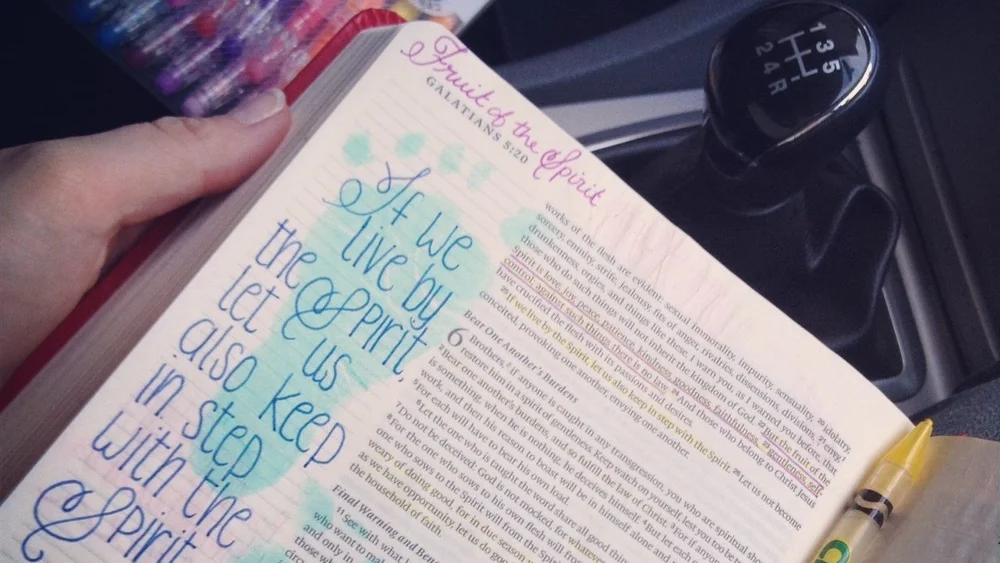 Fruit of the Spirit
GALATIANS 5:20
If we
live by
the Spirit,
let us
also keep
in step
with the
Spirit
works of the flesh are evident: sexual immorality, impurity, sensuality, 20 idolatry,
sorcery, enmity, strife, jealousy, fits of anger, rivalries, dissensions, divisions, 21 envy,
drunkenness, orgies, and things like these. I warn you, as I warned you before, that
those who do such things will not inherit the kingdom of God. 22 But the fruit of the
Spirit is love, joy, peace, patience, kindness, goodness, faithfulness, 23 gentleness, self-
control; against such things there is no law. 24 And those who belong to Christ Jesus
have crucified the flesh with its passions and desires.
25 If we live by the Spirit, let us also keep in step with the Spirit. 26 Let us not become
conceited, provoking one another, envying one another.
Bear One Another's Burdens
6 Brothers, if anyone is caught in any transgression, you who are spiritual
restore him in a spirit of gentleness. Keep watch on yourself, lest you too be
2 Bear one another's burdens, and so fulfill the law of Christ. 3 For if anyone
is something, when he is nothing, he deceives himself. 4 But let each
work, and then his reason to boast will be in himself alone and
5 For each will have to bear his own load.
6 Let the one who is taught the word share all good
7 Do not be deceived: God is not mocked, for whatever
8 For the one who sows to his own flesh will from
one who sows to the Spirit will from the Spirit
weary of doing good, for in due season
as we have opportunity, let us do
the household of faith.
Final Warning and
11 See with what
who want to
and only in
those
1 3 5
2 4 R